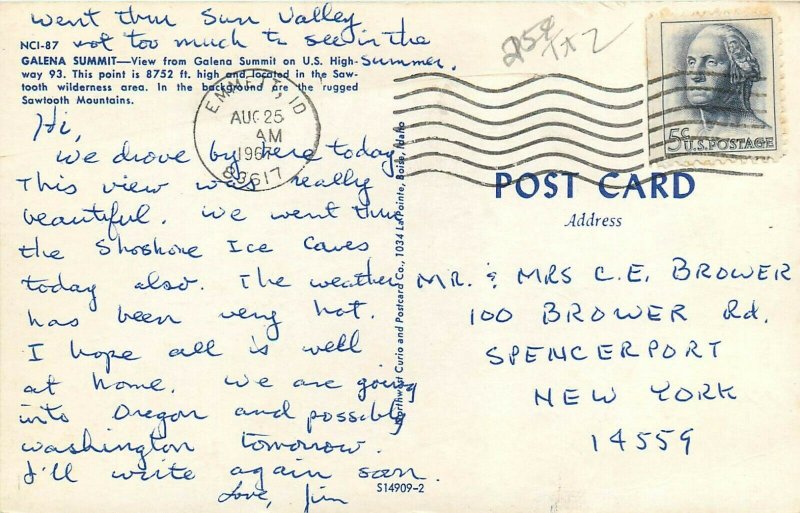 went thru Sun Valley
not too much to see in the
summer.
NCI-87
GALENA SUMMIT—View from Galena Summit on U.S. High-
way 93. This point is 8752 ft. high and located in the Saw-
tooth wilderness area. In the background are the rugged
Sawtooth Mountains.
Hi,
We drove by here today.
This view was really
beautiful. We went thru
the Shoshone Ice Caves
today also. The weather
has been very hot.
I hope all is well
at home. We are going
into Oregon and possibly
Washington tomorrow.
I'll write again soon.
Love, Jim
Northwest Curio and Postcard Co., 1034 La Pointe, Boise, Idaho
S14909-2
EMMETT, ID
AUG 25
AM
1967
83617
25¢
5¢ U.S. POSTAGE
POST CARD
Address
MR. & MRS C.E. BROWER
100 BROWER Rd.
SPENCERPORT
NEW YORK
14559